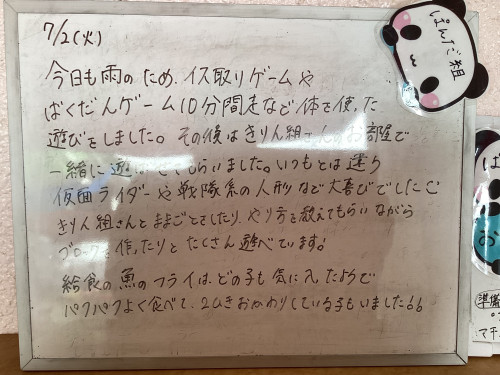 7/2(火)
ぱんだ組
今日も雨のため、イス取りゲームや
ばくだんゲーム10分間走など体を使った
遊びをしました。その後はきりん組さんのお部屋で
一緒に遊ばせてもらいました。いつもとは違う
仮面ライダーや戦隊系の人形など大喜びでした
きりん組さんとままごとをしたり、やり方を教えてもらいながら
ブロックを作ったりとたくさん遊べています。
給食の魚のフライは、どの子も気に入ったようで
パクパクよく食べて、2ひきおかわりしている子もいました
は
お
準備